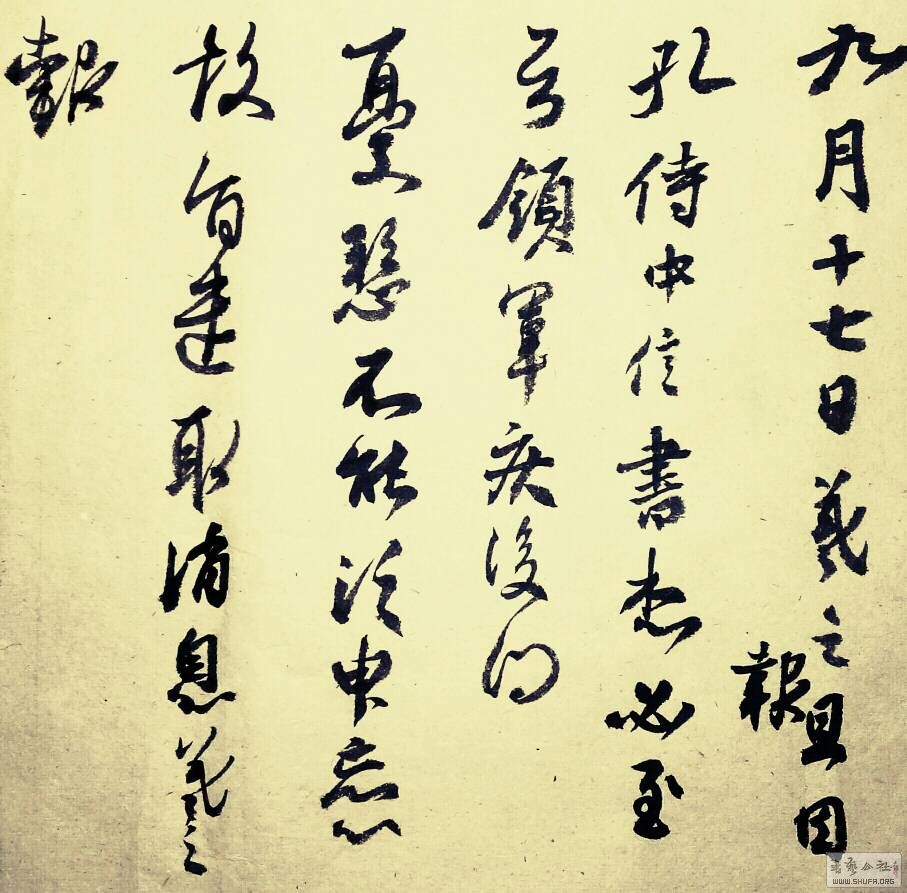 九月十七日羲之報且因
孔侍中信書想必至
不知領軍疾後問
憂懸不能須臾忘心
故旨遣取消息羲之
報
書藝公社
WWW.SHUFA.ORG